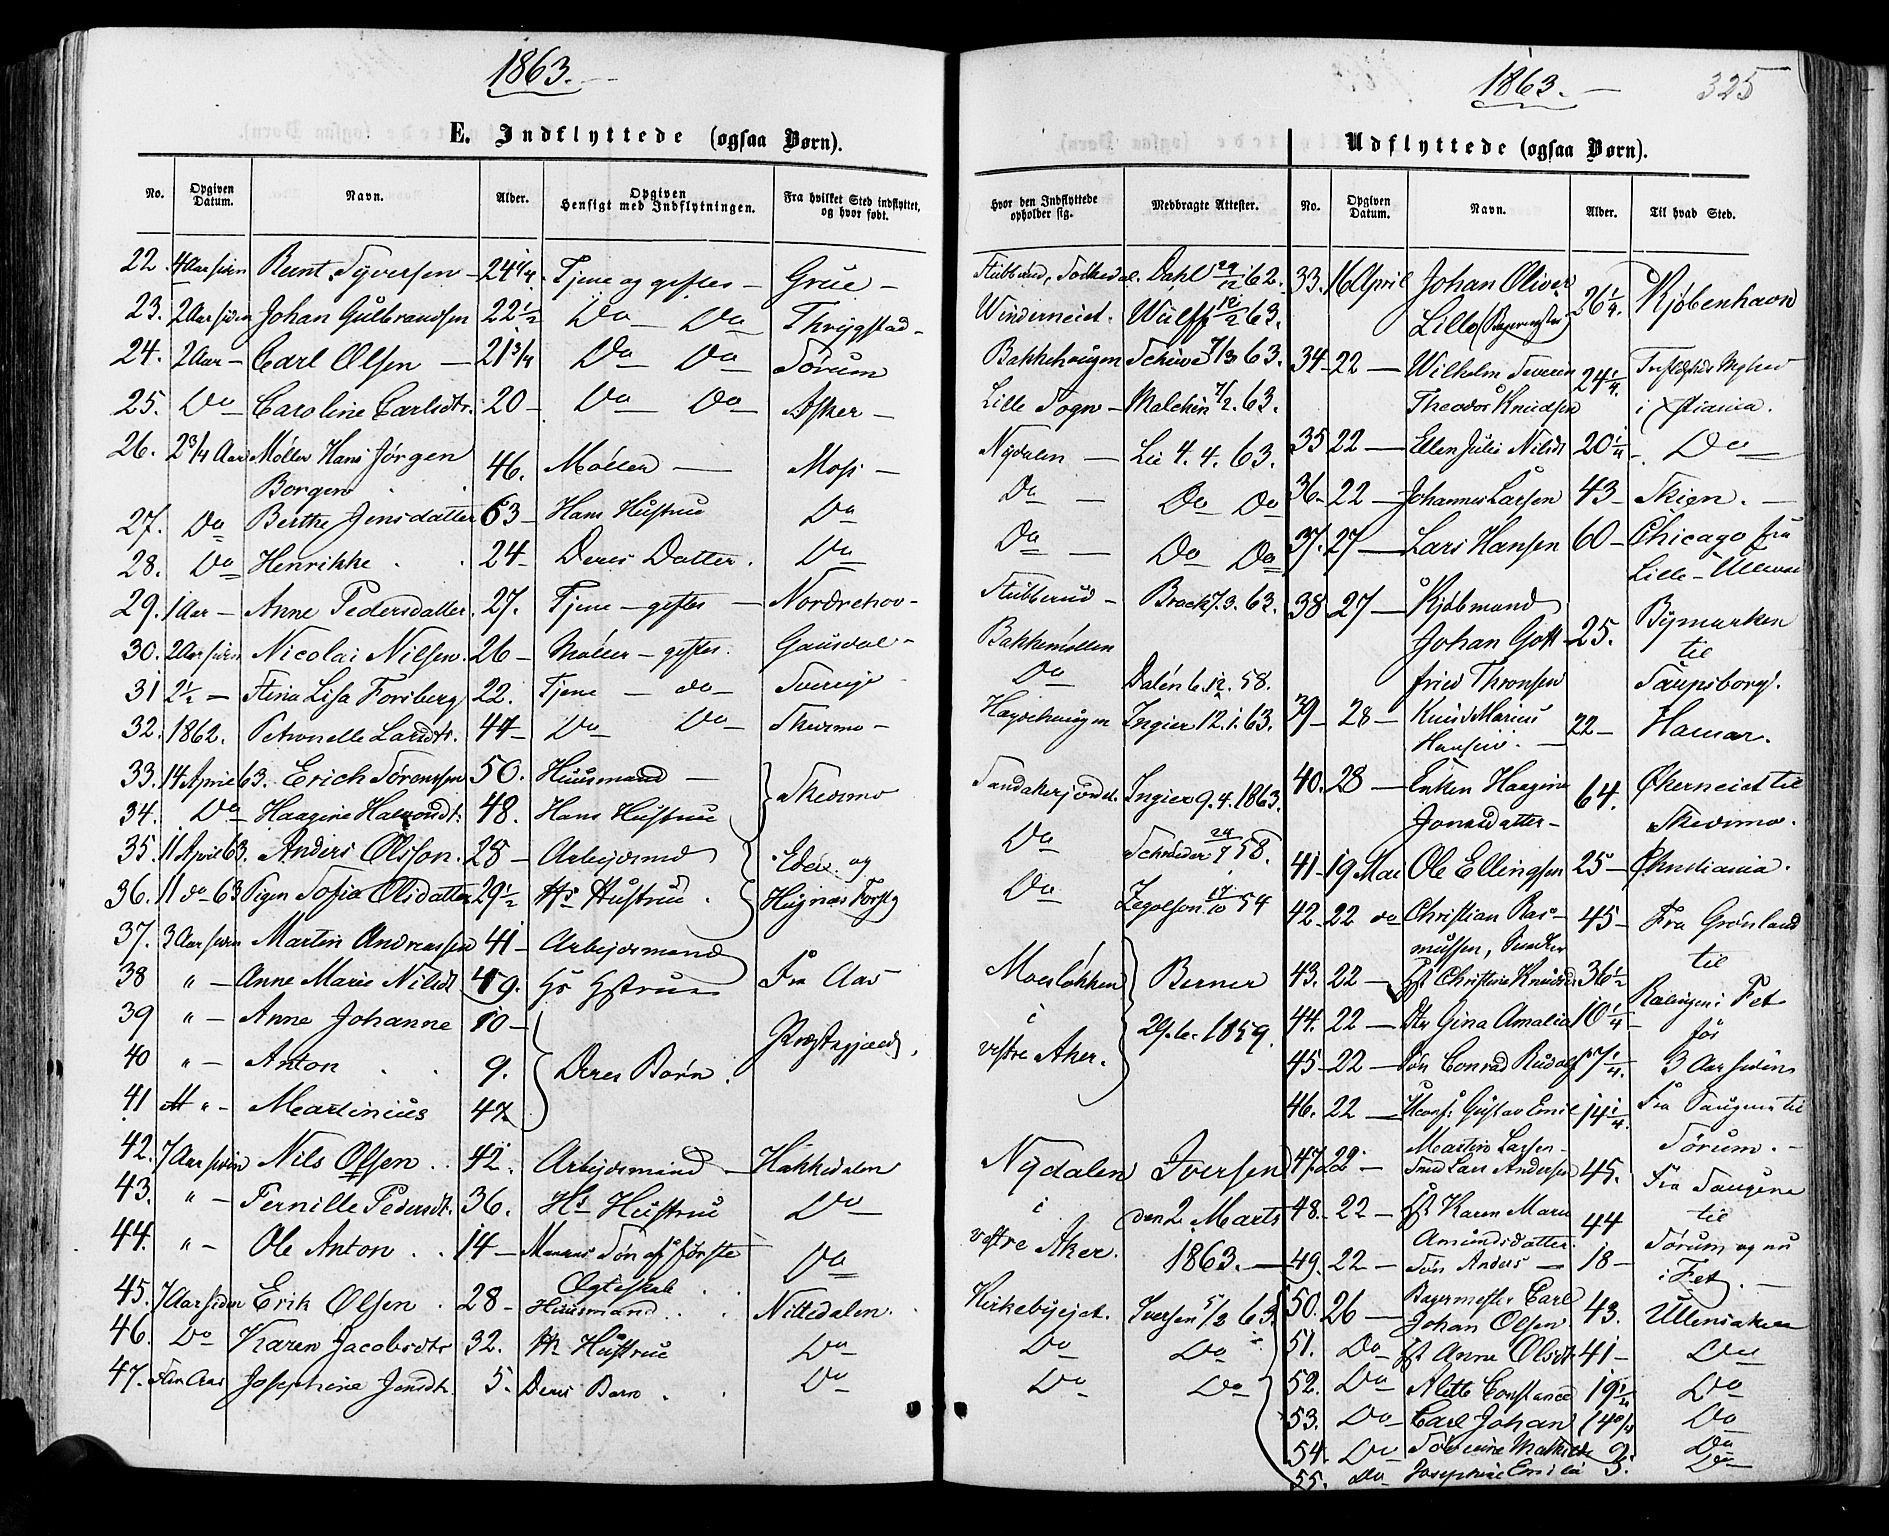 1863.
E. Indflyttede (ogsaa Børn).
No. Opgiven Datum. Navn. Alder. Opgiven Hensigt med Indflytningen. Fra hvilket Sted indflyttet, og hvor født.
22. 4 Aar siden Bernt Syversen 24 1/4 Tjene og giftes Grue
23. 2 Aar siden Johan Gulbrandsen 22 1/2 Do Do Thrygstad
24. 2 Aar Carl Olsen 21 3/4 Do Do Sørum
25. Do Caroline Carlsdtr. 20 Do Do Asker
26. 2 3/4 Aar Møller Hans Jørgen
Borgen 46. Møller Moss
27. Do Berthe Jensdatter 63 Hans Hustrue Do
28. Do Henrikke 24 Deres Datter. Do
29. 1 Aar Anne Pedersdatter 27. Tjene giftes Nordrehov
30. 2 Aar siden Nicolai Nilsen. 26 Møller giftes. Gausdal
31 2 1/2 Stina Lisa Forsberg 22. Tjene do Sverige
32. 1862. Petronelle Larsdtr. 44 Do Do Skedsmo
33. 14 April 63. Erich Sørenssen 50. Huusmand
34. Do Haagine Halvordt. 48. Hans Hustrue Skedsmo
35. 11 April 63. Anders Olsson. 28 Arbeidsmd Eda og
36. 11 do 63 Pigen Sofia Olsdatter 29 1/2 Hs Hustrue.
37. 3 Aar siden Martin Andreassen 41 Arbeidsmand
38 " Anne Marie Nilsdt 49. Hs Hstrue Fra Aas
39 " Anne Johanne 10
40 " Anton 9. Deres Børn. Præstegjæld.
41 " Martinius 4
42. 7 Aar siden Nils Olsen 42. Arbeidsmand Hakkedalen
43. " Pernille Pedersdt. 36. Hs Hustrue Do
44. " Ole Anton 14 Mannens Søn af første
Ægteskab Do
45. 7 Aar siden Erik Olsen 28 Huusmand Nittedalen
46. Do Karen Jacobsdtr 32. Hs Hustrue Do
47. Fem Aar Josephine Jensdt. 5. Deres Barn. Do
1863.
325
Hvor den Indflyttede opholder sig. Medbragte Attester.
Stubberud, Dahl 29/12 62.
Winderneiet. Wulff 18/2 63.
Bakkehaugen Schiwe 7/3 63.
Lille Sogn 7/2. 63.
Nydalen Lie 4. 4. 63.
Do Do Do
Do Do Do
Stubberud Brock 7. 3. 63.
Bakkemøllen
Do Dalén 6. 12. 58.
Ingier 12. 1. 63.
Sandakerjordet. Ingier 9. 4. 1863.
Do Schrøder 24/7 58.
Do 17/10 54
Moesløkken
i
vestre Aker. Berner
29. 6. 1859.
Nydalen
i
vestre Aker. Iversen
den 2 Marts
1863.
Kirkebyejet. Iversen 5/3 63
Do Do
Do Do
Udflyttede (ogsaa Børn).
No. Opgiven Datum. Navn. Alder. Til hvad Sted.
33. 16 April Johan Oliver
Lille 26 1/4. Kjøbenhavn
34 22 Wilhelm Severin
Theodor Knudsen 24 1/4
i Xstiania.
35 22 Ellen Julie Nilsdt 20 1/4 Do
36 22 Johannes Larsen 43 Skien.
37. 27 Lars Hansen 60 Chicago fra
Lille-Ullevaal
38 27 Kjøbmand
Johan Gott-
fried Thronsen 25. Bymarken
til
Sarpsborg.
39 28 Knud Marius
Hansen. 22 Hamar.
40. 28 Enken Haagine
Jonasdatter 64. Økerneiet til
Skedsmo.
41 19 Mai Ole Ellingsen 25 Christiania.
42. 22 do Christian Ras-
mussen, Snedker 45 Fra Grønland
til
43. 22 Hst Christine Knudsdt 36 1/2 Rælingen i Fet
44. 22 Dtr Gina Amalia 10 1/4 for
45 22 Søn Conrad Rudolf 7 1/4 3 Aar siden
46. 22 Gustav Emil
Martin Larsen 14 1/4 Fra Saugene til
Sørum.
47. 22 Lars Andersen 45. Fra Saugene
48. 22 Hst Karen Marie
Amundsdatter. 44 til
49. 22 Søn Anders 18 Sørum og nu
i Fet.
50. 26 Bagermester Carl
Johan Olsen. 43. Ullensaker
51. Do Hst Anne Olsdt. 41 Do
52. Do Alette Constance 19 1/2 Do
53. Do Carl Johan 14 Do
54. Do Mathilde 9. Do
55. Do Josephine Emilie 3. Do